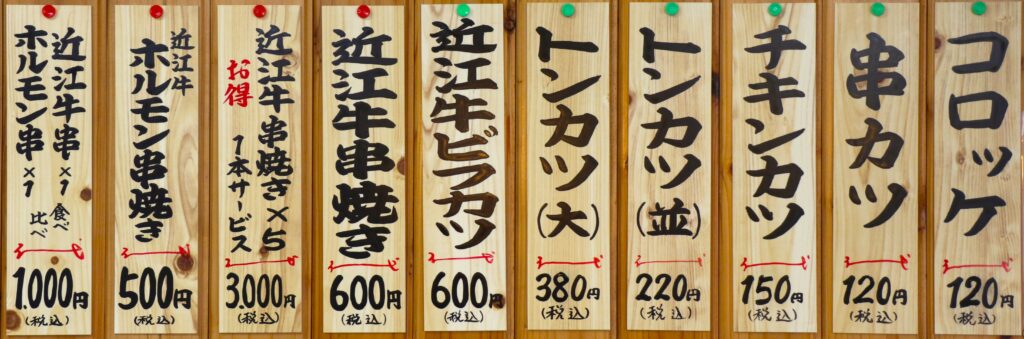 コロッケ
120円
(税込)
串カツ
120円
(税込)
チキンカツ
150円
(税込)
トンカツ(並)
220円
(税込)
トンカツ(大)
380円
(税込)
近江牛ビフカツ
600円
(税込)
近江牛串焼き
600円
(税込)
近江牛串焼き×5
お得
1本サービス
3.000円
(税込)
近江牛
ホルモン串焼き
500円
(税込)
近江牛串×1
ホルモン串×1
食べ
比べ
1.000円
(税込)